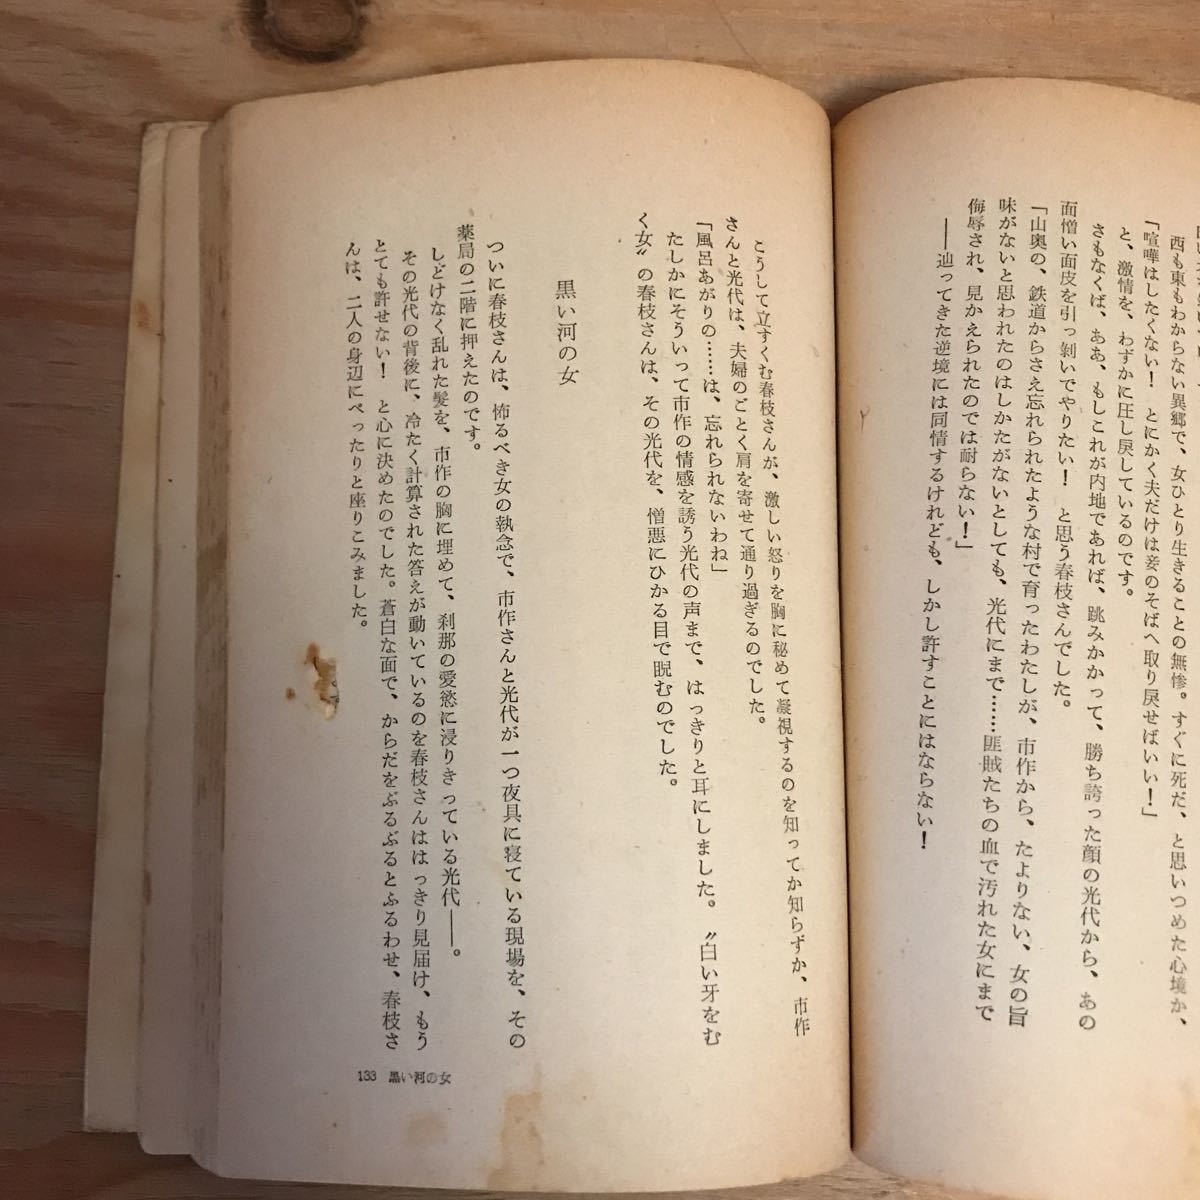 西も東もわからない異郷で、女ひとり生きることの無惨。すぐに死だ、と思いつめた心境か、
「喧嘩はしたくない！　とにかく夫だけは妾のそばへ取り戻せばいい！」
と、激情を、わずかに圧し戻しているのです。
さもなくば、ああ、もしこれが内地であれば、跳みかかって、勝ち誇った顔の光代から、あの
面憎い面皮を引っ剝いでやりたい！　と思う春枝さんでした。
「山奥の、鉄道からさえ忘れられたような村で育ったわたしが、市作から、たよりない、女の旨
味がないと思われたのはしかたがないとしても、光代にまで……匪賊たちの血で汚れた女にまで
侮辱され、見かえられたのでは耐らない！」
――辿ってきた逆境には同情するけれども、しかし許すことにはならない！
こうして立すくむ春枝さんが、激しい怒りを胸に秘めて凝視するのを知ってか知らずか、市作
さんと光代は、夫婦のごとく肩を寄せて通り過ぎるのでした。
「風呂あがりの……は、忘れられないわね」
たしかにそういって市作の情感を誘う光代の声まで、はっきりと耳にしました。〝白い牙をむ
く女〟の春枝さんは、その光代を、憎悪にひかる目で睨むのでした。
黒い河の女
ついに春枝さんは、怖るべき女の執念で、市作さんと光代が一つ夜具に寝ている現場を、その
薬局の二階に押えたのです。
しどけなく乱れた髪を、市作の胸に埋めて、刹那の愛慾に浸りきっている光代――。
その光代の背後に、冷たく計算された答えが動いているのを春枝さんははっきり見届け、もう
とても許せない！　と心に決めたのでした。蒼白な面で、からだをぶるぶるとふるわせ、春枝さ
んは、二人の身辺にぺったりと座りこみました。
133　黒い河の女